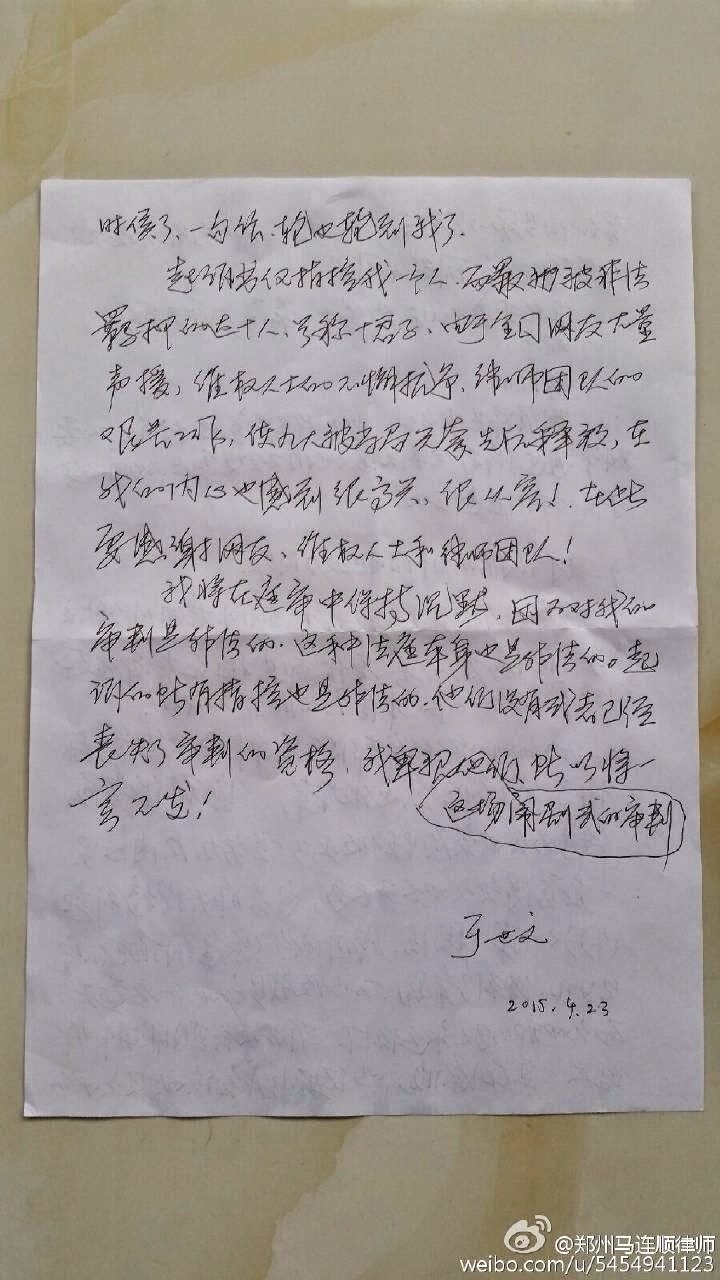 时候了、一句话、轮也轮到我了.
起诉书仅指控我一个人.而最初被非法
羁押的达十人、号称十君子、由于全国网友大量
声援,维权人士的不懈抗争、律师团队的
艰苦工作,使九人被当局无奈先后释放,在
我的内心也感到很高兴、很欣慰!在此
要感谢网友、维权人士和律师团队!
我将在庭审中保持沉默,因为对我的
审判是非法的.这种法庭本身也是非法的。起
诉的所有指控也是非法的.他们没有或者已经
丧失了审判的资格、我卑视他们、所以将一
言不发!
这场闹剧式的审判
于世文
2015.4.23
@郑州马连顺律师
weibo.com/u/5454941123